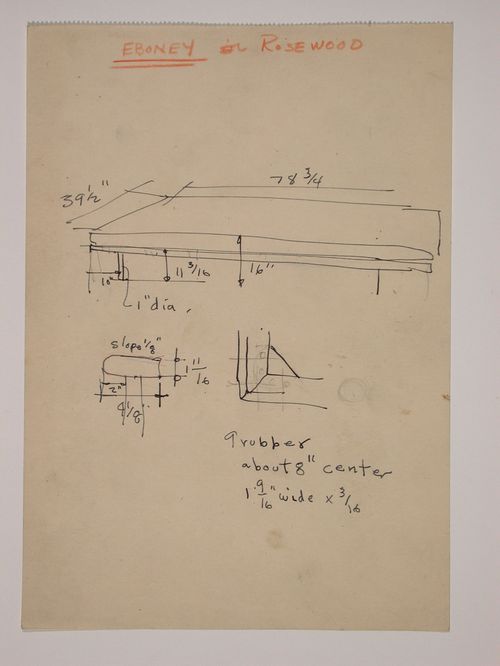 EBONEY or ROSEWOOD
78 3/4
39 1/2"
11 3/16
16"
10"
1" dia.
slope 1/8"
1 11/16
2"
9 rubber
about 8" center
1 9/16" wide x 3/16